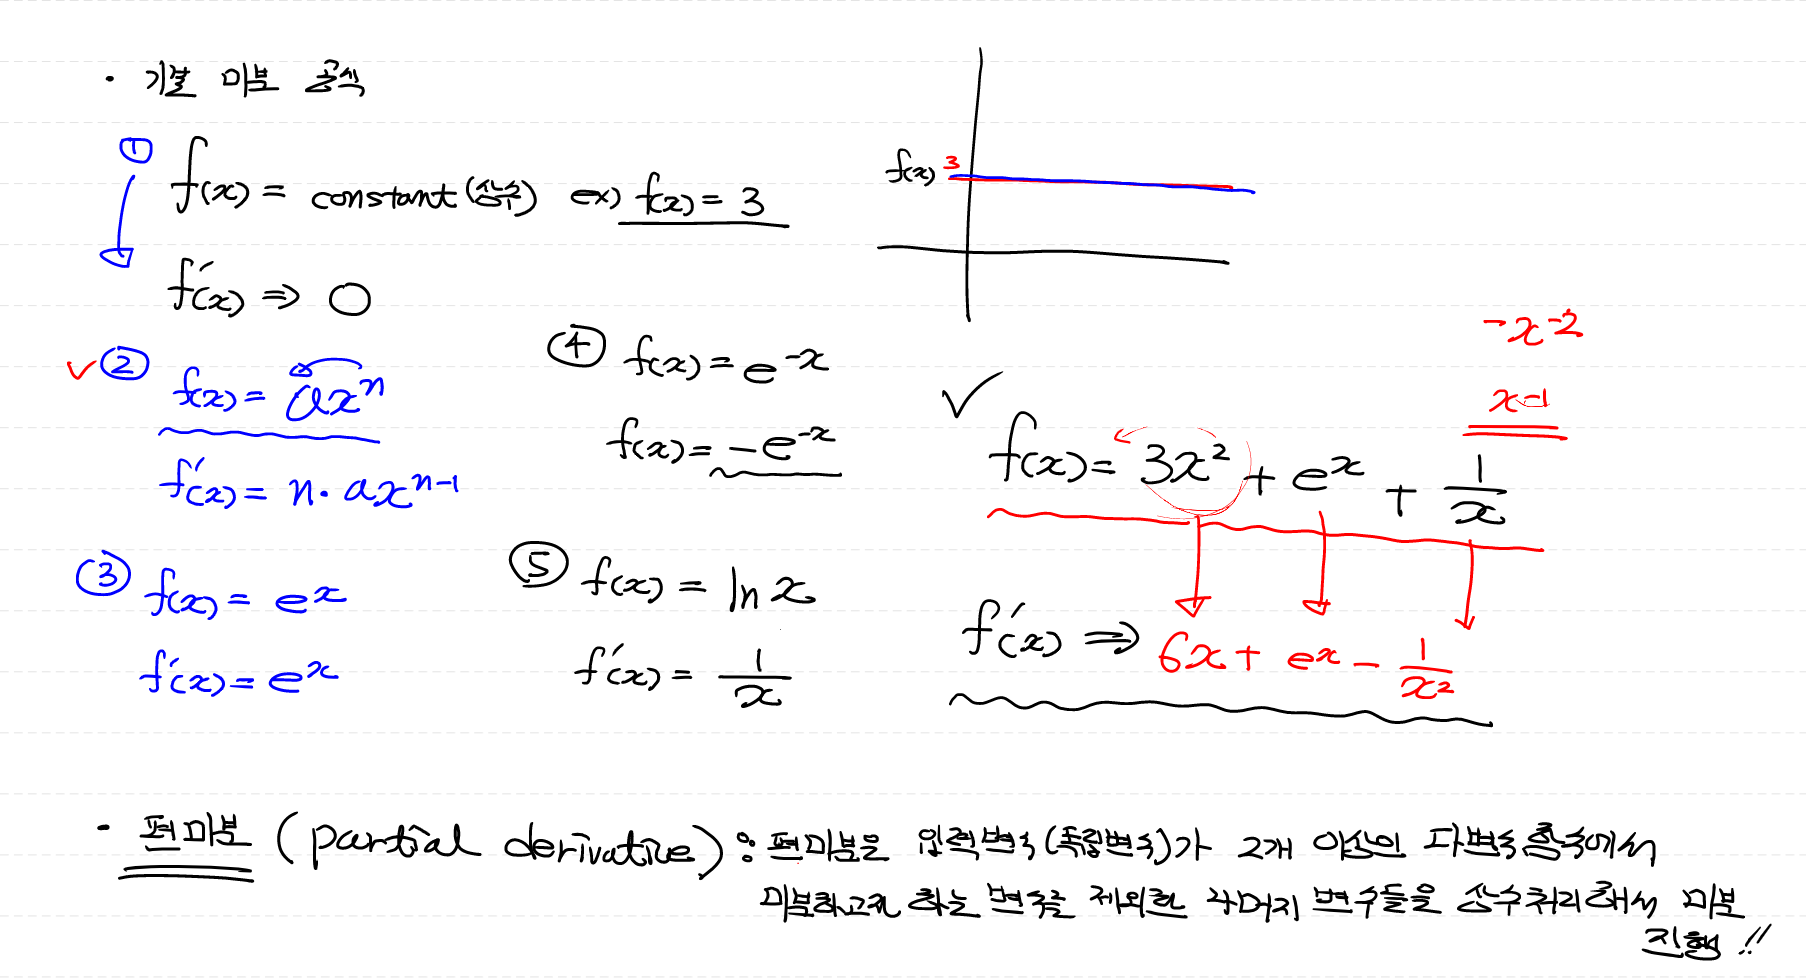 · 기본 미분 공식
① f(x) = constant (상수) ex) f(x) = 3
f'(x) ⇒ 0
f(x) 3
✓② f(x) = axⁿ
f'(x) = n · axⁿ⁻¹
③ f(x) = eˣ
f'(x) = eˣ
④ f(x) = e⁻ˣ
f(x) = -e⁻ˣ
⑤ f(x) = ln x
f'(x) = 1/x
-x⁻²
x⁻¹
✓ f(x) = 3x² + eˣ + 1/x
f'(x) ⇒ 6x + eˣ - 1/x²
· 편미분 (partial derivative) : 편미분은 입력변수(독립변수)가 2개 이상인 다변수함수에서
미분하고자 하는 변수를 제외한 나머지 변수들을 상수처리해서 미분
진행!!